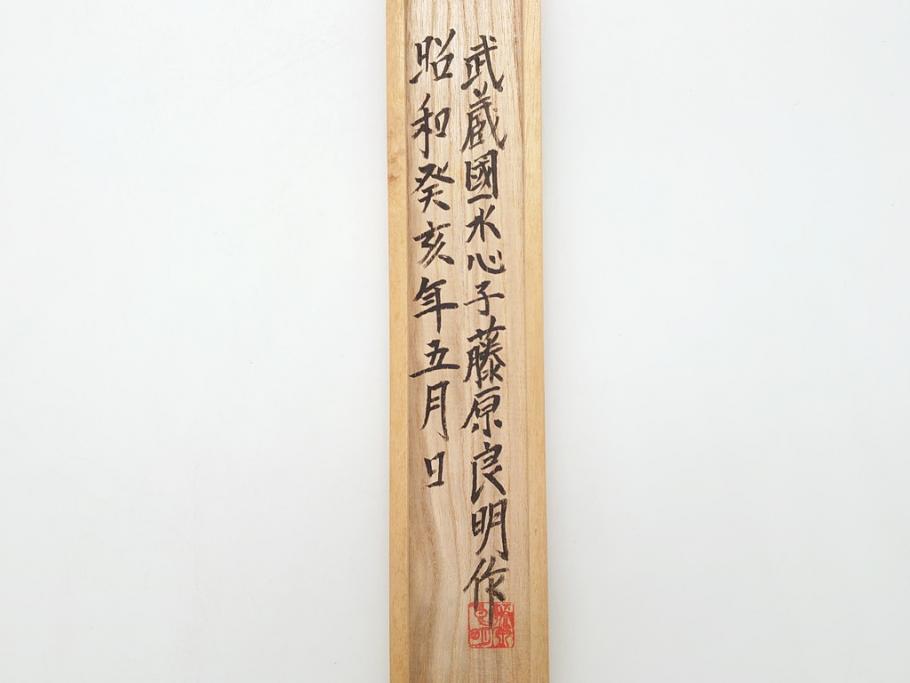 武蔵國一水心子藤原良明作
昭和癸亥年五月日